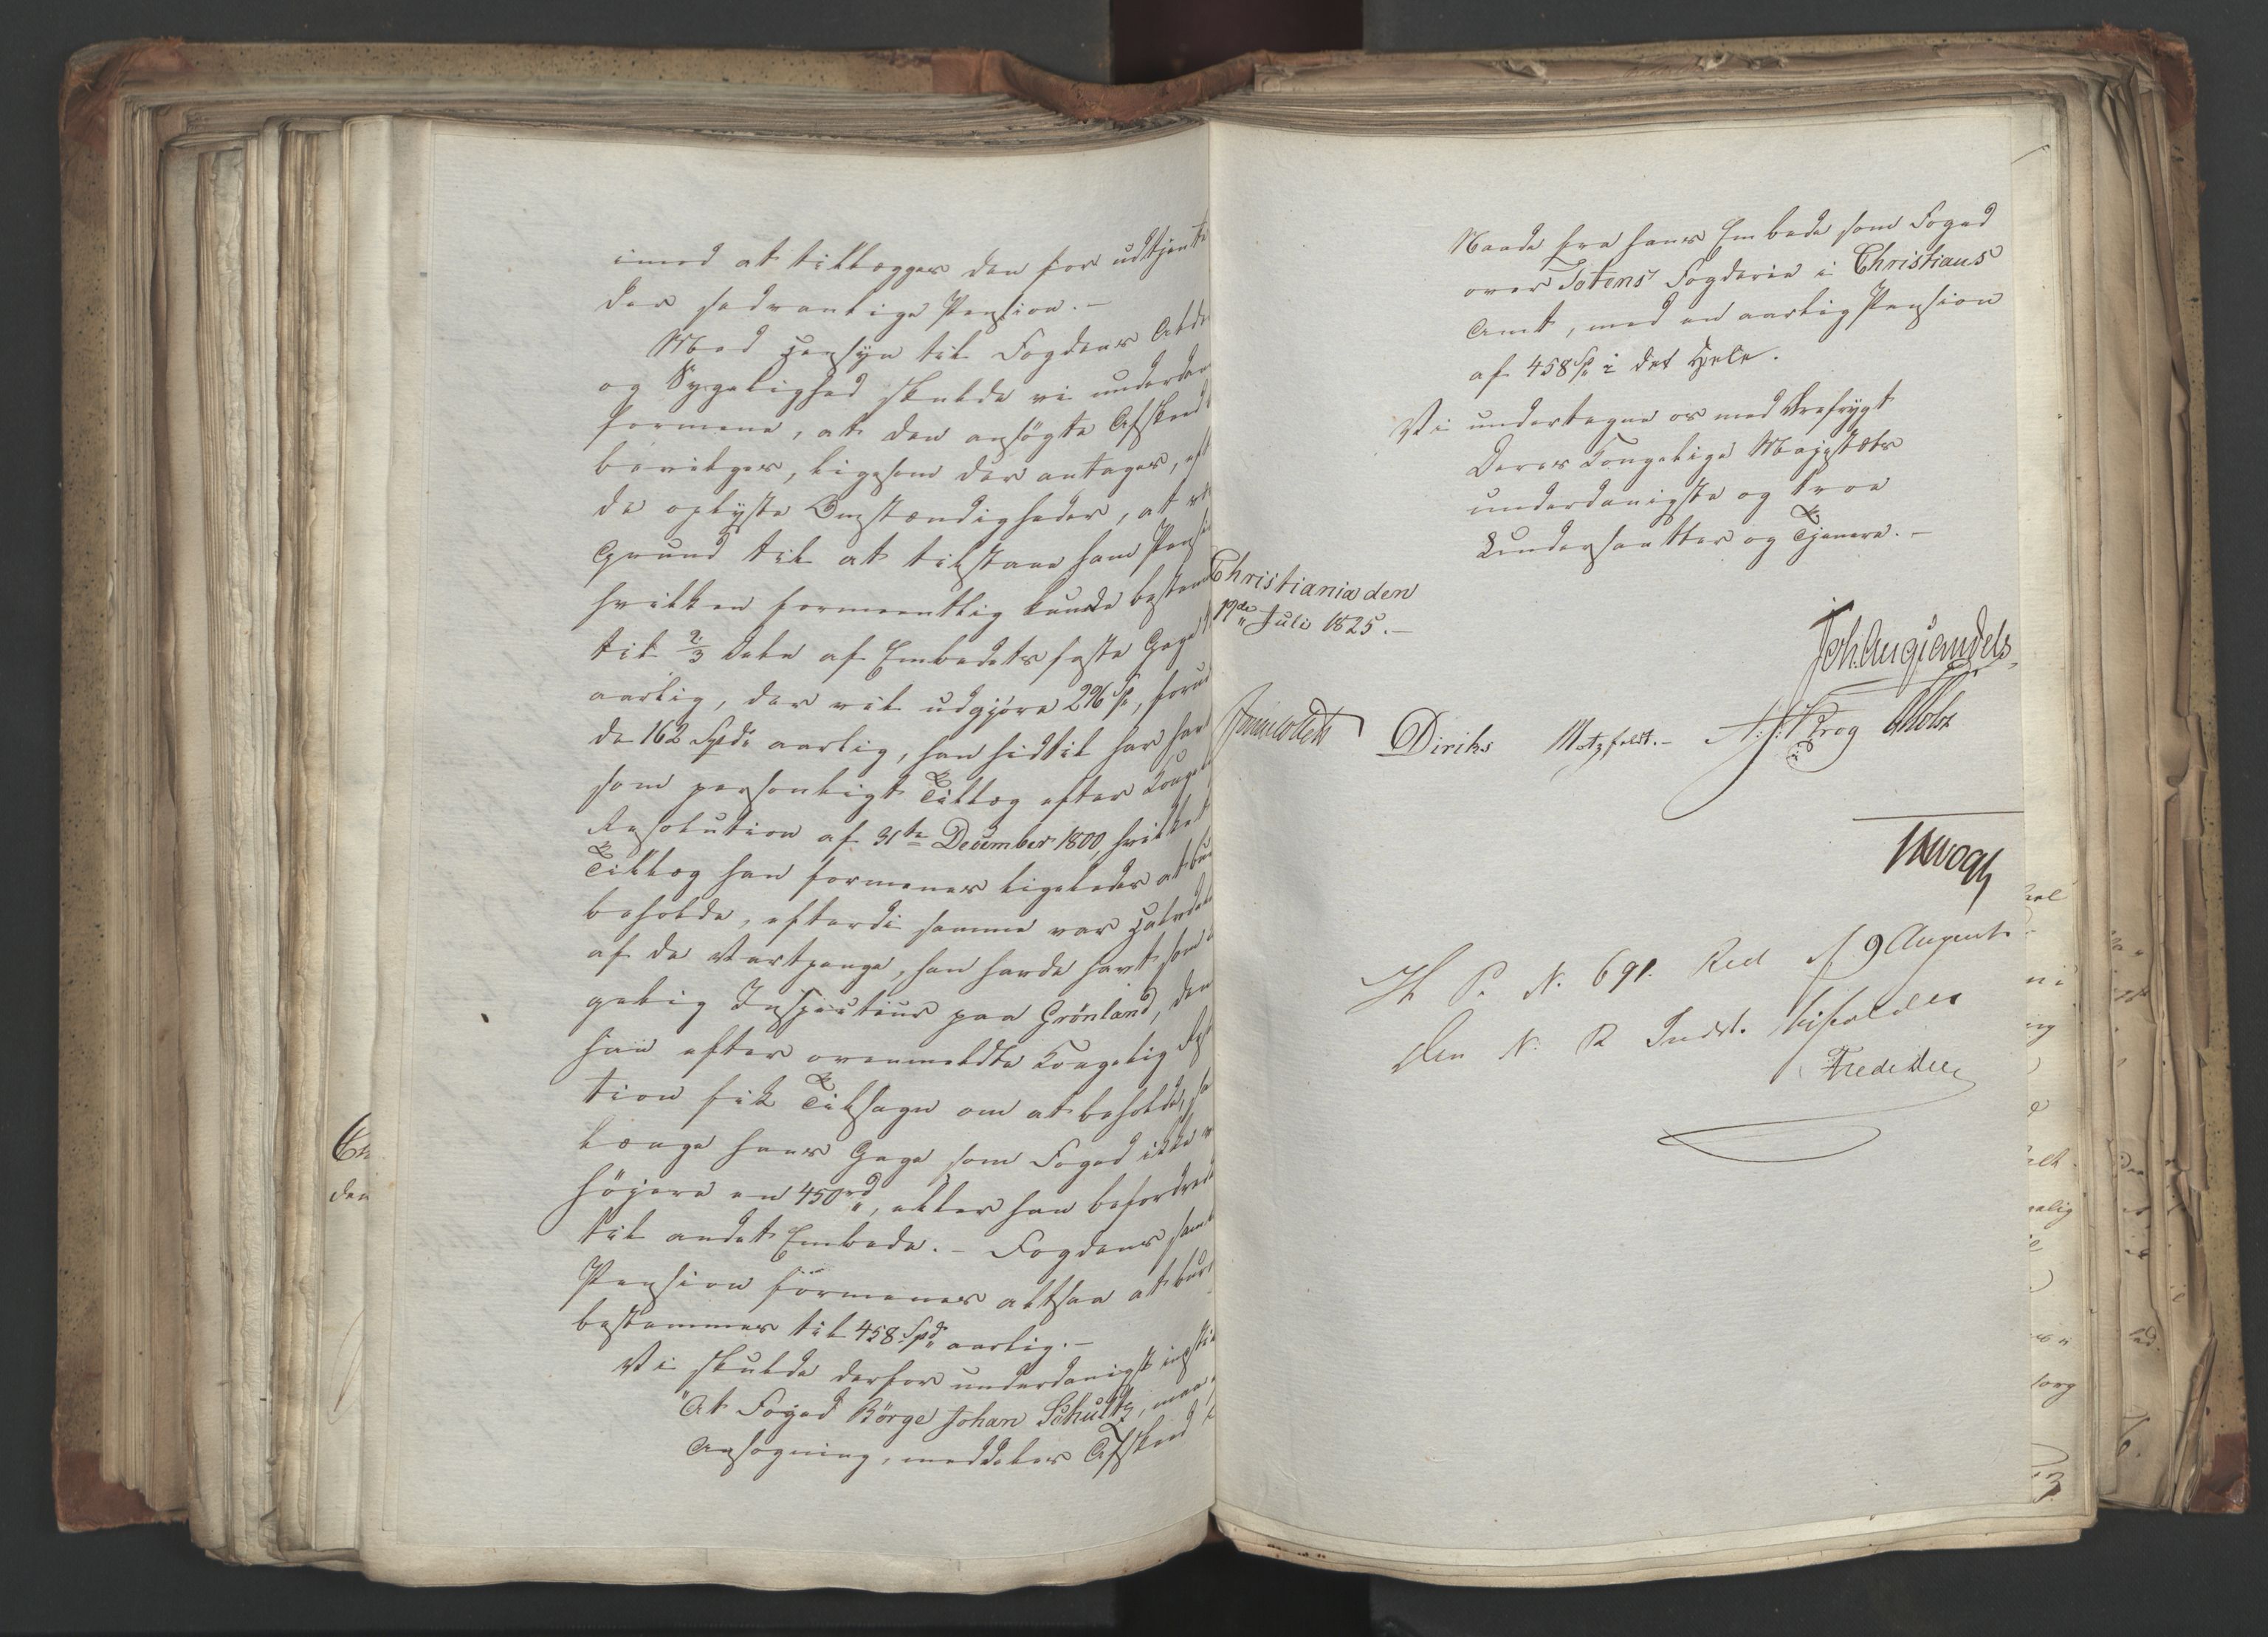 imod at tillægges den for udtjent
der sædvanlige Pension. –
Med Hensyn til Fogdens Alde
og Sygelighed skulde vi underda
formene, at den ansögte Afskeed
bevilges, ligesom der antages, eft
de oplyste Omstændigheder, at v
Grund til at tilstaae ham Pensi
hvilken formeentlig kunde bestem
til 2/3 Dele af Embedets faste Gage
aarlig, der vil udgjöre 296 Sp, foru
de 162 Spd aarlig, han hidtil har hav
som personligt Tillæg efter Konge
Resolution af 31te December 1800, hvilket
Tillæg han formenes ligeledes at bu
beholde, efterdi samme var Halvdele
af de Vartpenge, han havde havt som
gelig Inspecteur paa Grönland, den
han efter ovenmeldte Kongelig Res
tion fik Tilsagn om at beholde, sa
længe hans Gage som Foged ikke v
höyere en 450 rd, eller han befordred
til andet Embede. – Fogdens sam
Pension formenes altsaa at bur
bestemmes til 458 Spd aarlig. –
Vi skulde derfor underdanigst insti
"At Foged Börge Johan Schultz, maa
Ansögning, meddeles Afskeed i
Naade fra hans Embede som Foged
over Totens Fogderie i Christians
Amt, med en aarlig Pension
af 458 Sp i det Hele.
Vi undertegne os med Ærefrygt
Deres Kongelige Majestæts
underdanigste og troe
Undersaatter og Tjenere. –
Christiania den
19de Juli 1825. –
Joh. Aug. Sandels
Diriks Motzfeldt. – A. J. Krog Holst
J. H. Vogt
H. P. N. 691. Red 9 August
Den N. R. Indst. bifaldes